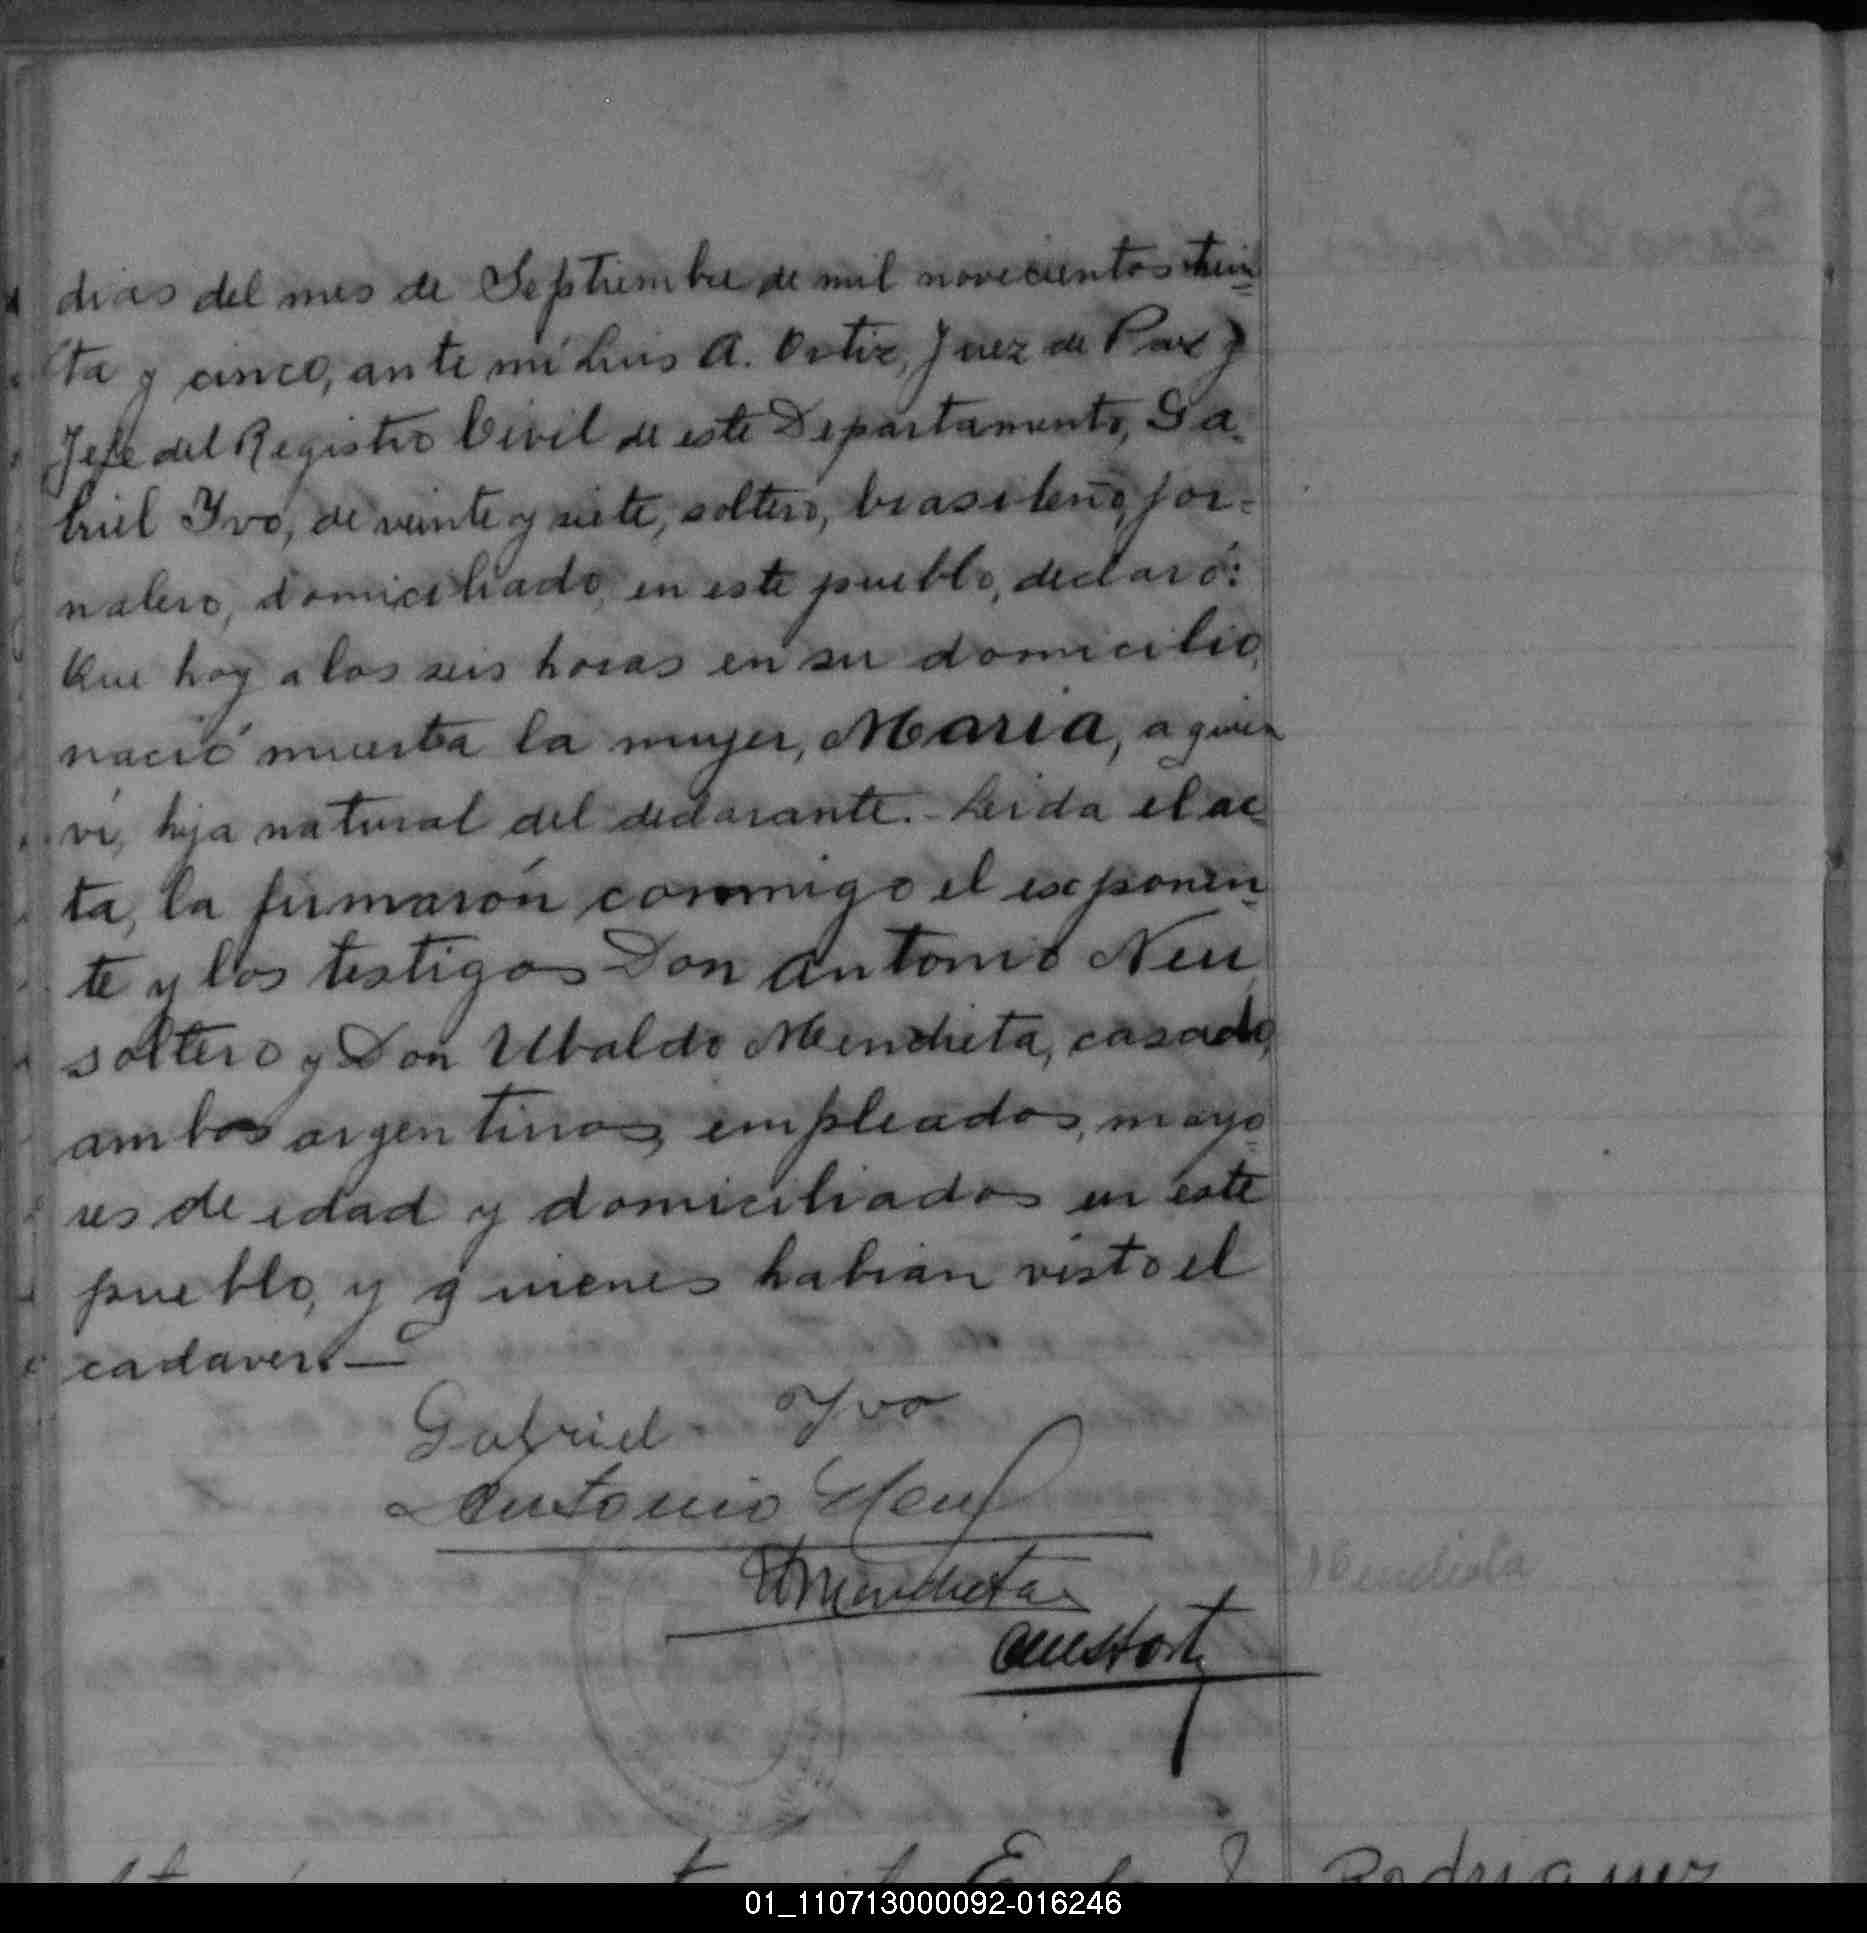 dias del mes de Septiembre de mil novecientos trein
ta y cinco, ante mí Luis A. Ortiz, Juez de Paz y
Jefe del Registro Civil de este Departamento, Ga-
briel Yvo, de veinte y siete, soltero, brasileño, jor-
nalero, domiciliado, en este pueblo, declaró:
Que hoy a las seis horas en su domicilio,
nació muerta la mujer, Maria, a quien
vi, hija natural del declarante.- Leida el ac-
ta, la firmarón conmigo el exponen-
te y los testigos Don Antonio Neu
soltero y Don Ubaldo Mendieta, casado,
ambos argentinos, empleados, mayo-
res de edad y domiciliados en este
pueblo, y quienes habian visto el
cadaver.—
Gabriel Yvo
Antonio Neu
UMendieta
Rodriguez
01_110713000092-016246